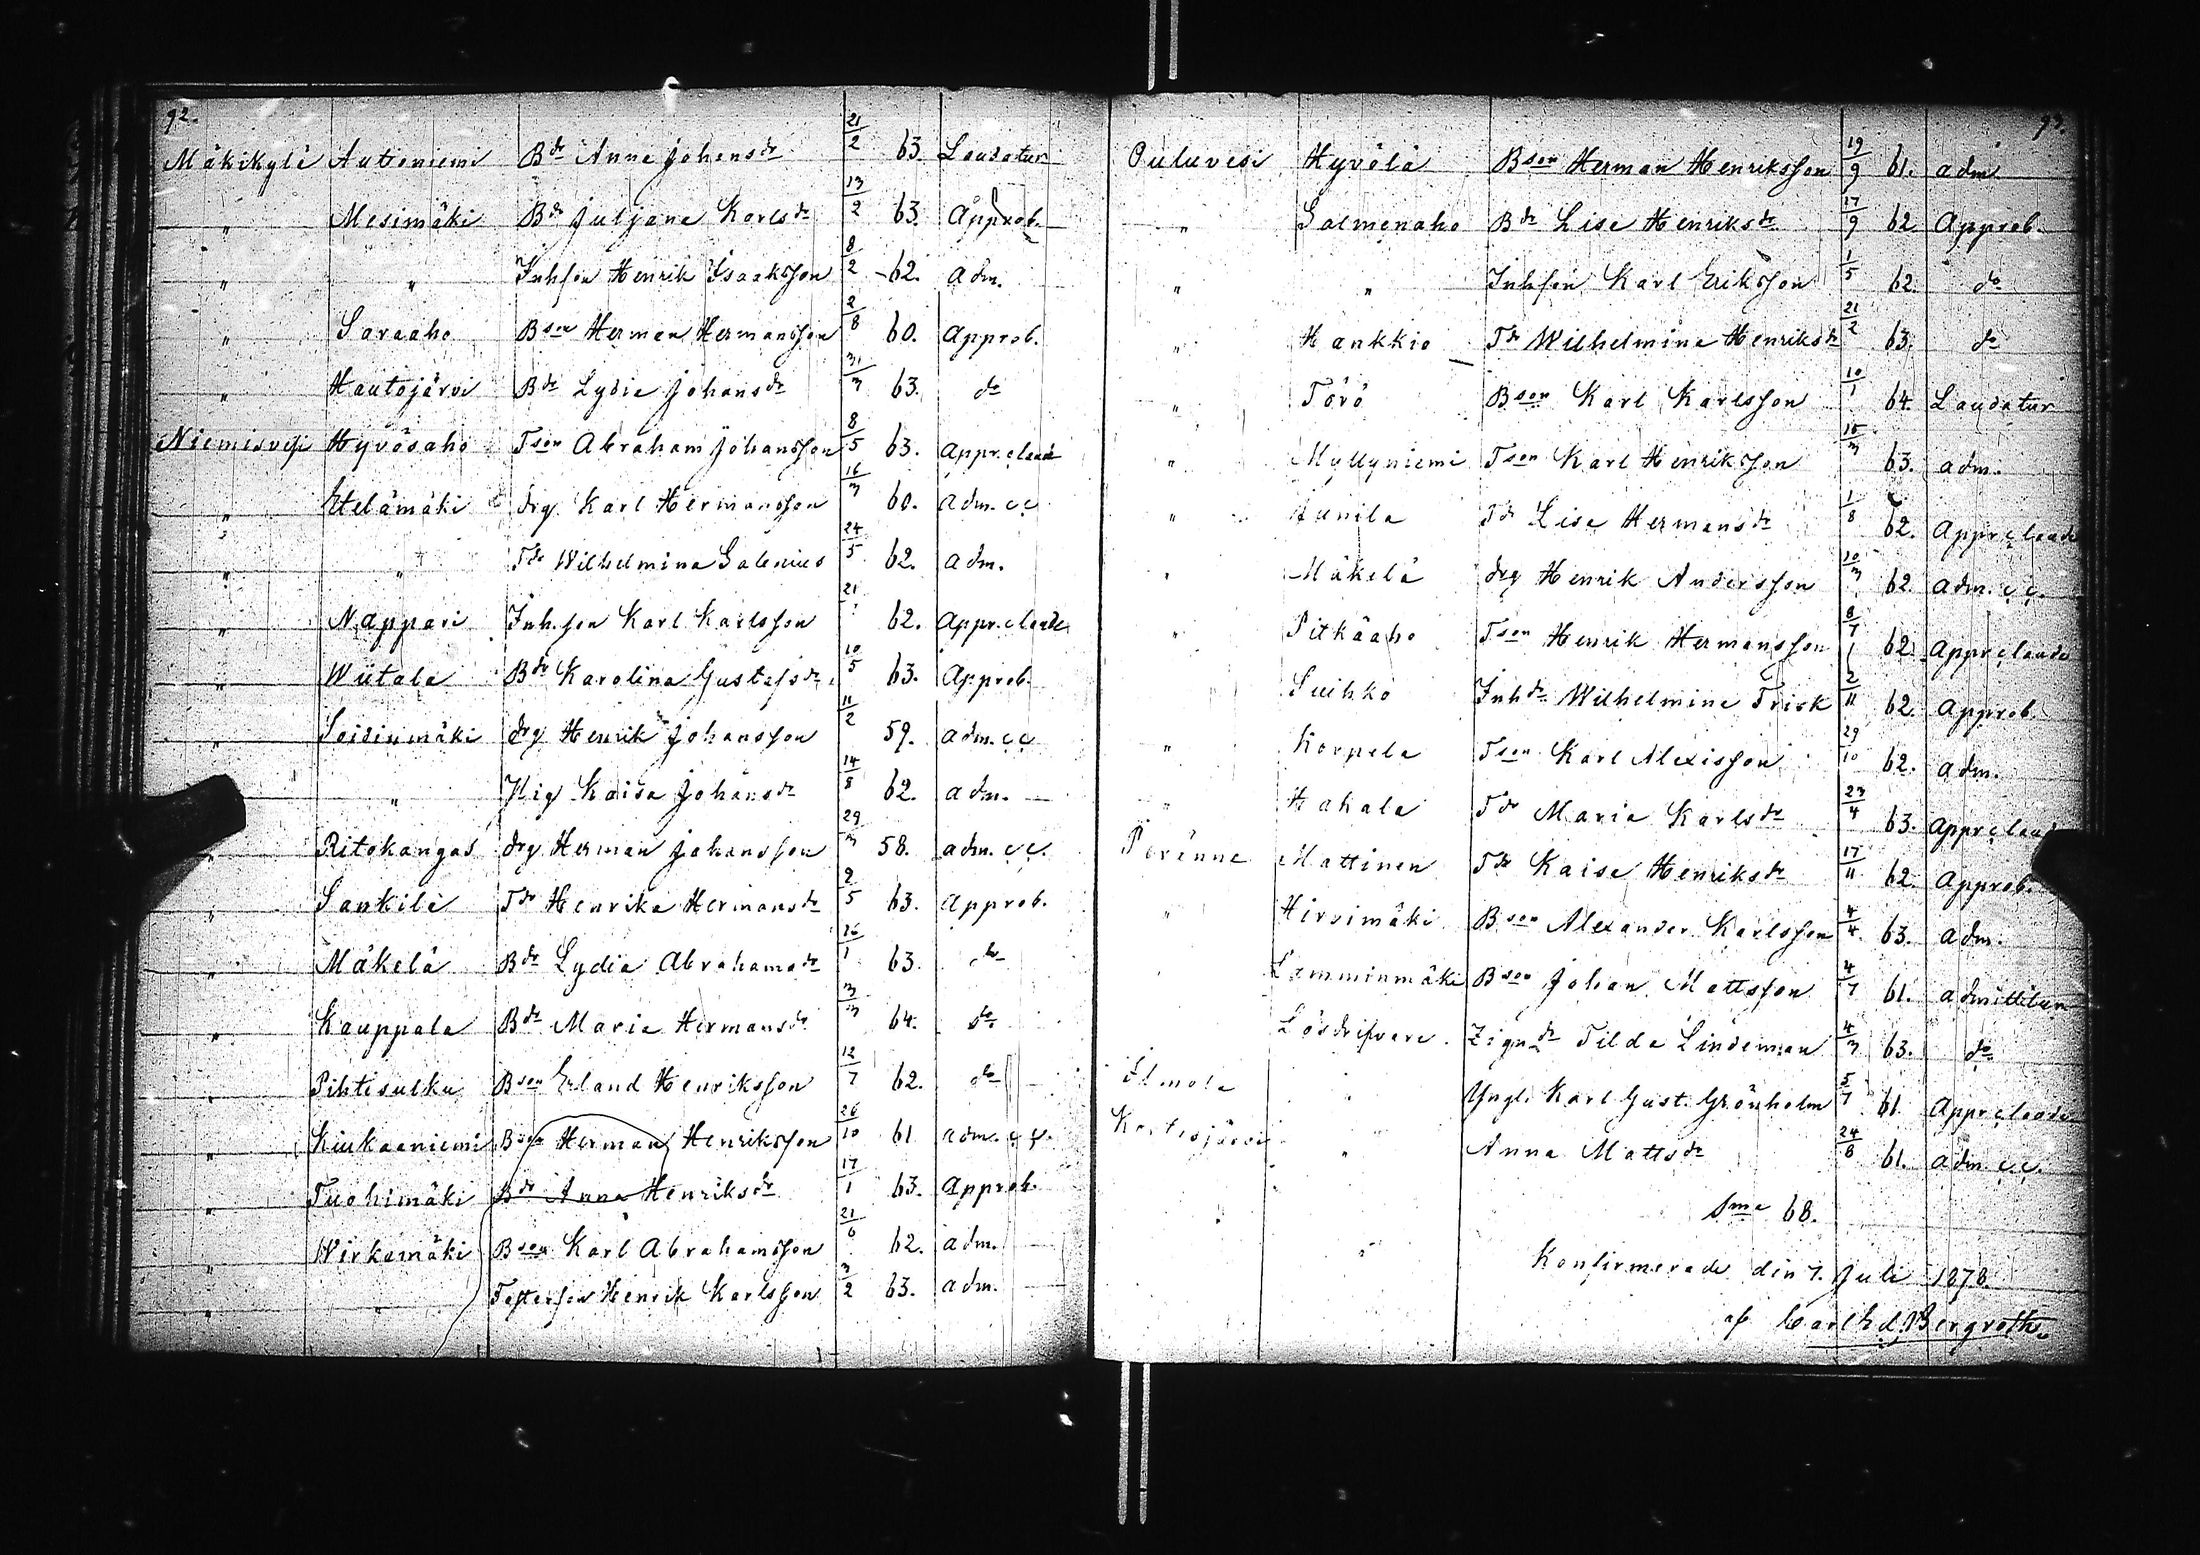 92.
Mäkikylä Autioniemi Bdr Anna Johansdr 21/2 63. Laudatur
" Mesimäki Bdr Juljana Karlsdr 13/2 63. Approb.
" " Inhson Henrik Isaaksson 8/2 62. Adm.
" Saraaho Bson Herman Hermansson 2/8 60. Approb.
" Hautojärvi Bdr Lydia Johansdr 31/3 63. do
Niemisvesi Hyvösaho Tson Abraham Johansson 8/5 63. Appr. c laude
" Etelämäki drg Karl Hermansson 16/3 60. adm. c c
" " Tdr Wilhelmina Salenius 24/5 62. adm.
" Nappari Inh.son Karl Karlsson 21/ 62. Appr. c laude
" Wiitala Bdr Karolina Gustafsdr 10/5 63. Approb.
" Soidinmäki drg Henrik Johansson 11/2 59. adm. c c
" Pig Kaisa Johansdr 14/8 62. adm.
" Ritokangas drg Herman Johansson 29/3 58. adm. c c.
" Sankila Tdr Henrika Hermansdr 2/5 63. Approb.
" Mäkelä Bdr Lydia Abrahamsdr 26/1 63. do
" Kauppala Bdr Maria Hermansdr 3/3 64. do
" Pihtisulku Bson Erland Henriksson 12/7 62. do
" Kiukaaniemi Bson Herman Henriksson 26/10 61 adm. c c.
" Tuohimäki Bdr Anna Henriksdr 17/1 63. Approb.
" Wirkamäki Bson Karl Abrahamsson 21/6 62. adm.
" Fosterson Henrik Karlsson 3/2 63. adm.
93.
Ouluvesi Hyvölä Bson Herman Henriksson 19/9 61. adm
" Salmenaho Bdr Lisa Henriksdr 17/9 62 Approb.
" " Inhson Karl Eriksson 1/5 62. do
" Hankkio Tdr Wilhelmina Henriksdr 21/2 63. do
" Törö Bson Karl Karlsson 10/1 64. Laudatur
" Myllyniemi Tson Karl Henriksson 15/3 63. adm.
" Junila Tdr Lisa Hermansdr 1/8 62. Appr c laude
" Mäkelä drg Henrik Andersson 10/3 62. adm. c c.
" Pitkäaho Tson Henrik Hermansson 8/7 62. Appr c laude
Suihko Inhdr Wilhelmina Frisk 2/11 62. Approb.
" Korpela Tson Karl Alexisson 29/10 62. adm.
" Hakala Tdr Maria Karlsdr 23/4 63. Appr c laude
Peränne Mattinen Tdr Kaisa Henriksdr 17/11 62. Approb.
" Hirsimäki Bson Alexander Karlsson 4/4 63. adm.
Lamminmäki Bson Johan Mattsson 4/7 61. admittitur
Lösdrifvare. Zigndr Tilda Lindeman 4/3 63. do
Ilmola " Yngl. Karl Gust. Grönholm 5/7 61 Appr c laude
" Anna Mattsdr 24/8 61. adm c c.
Sma 68.
Konfirmerade den 7. Juli 1878
af Carl Bergroth